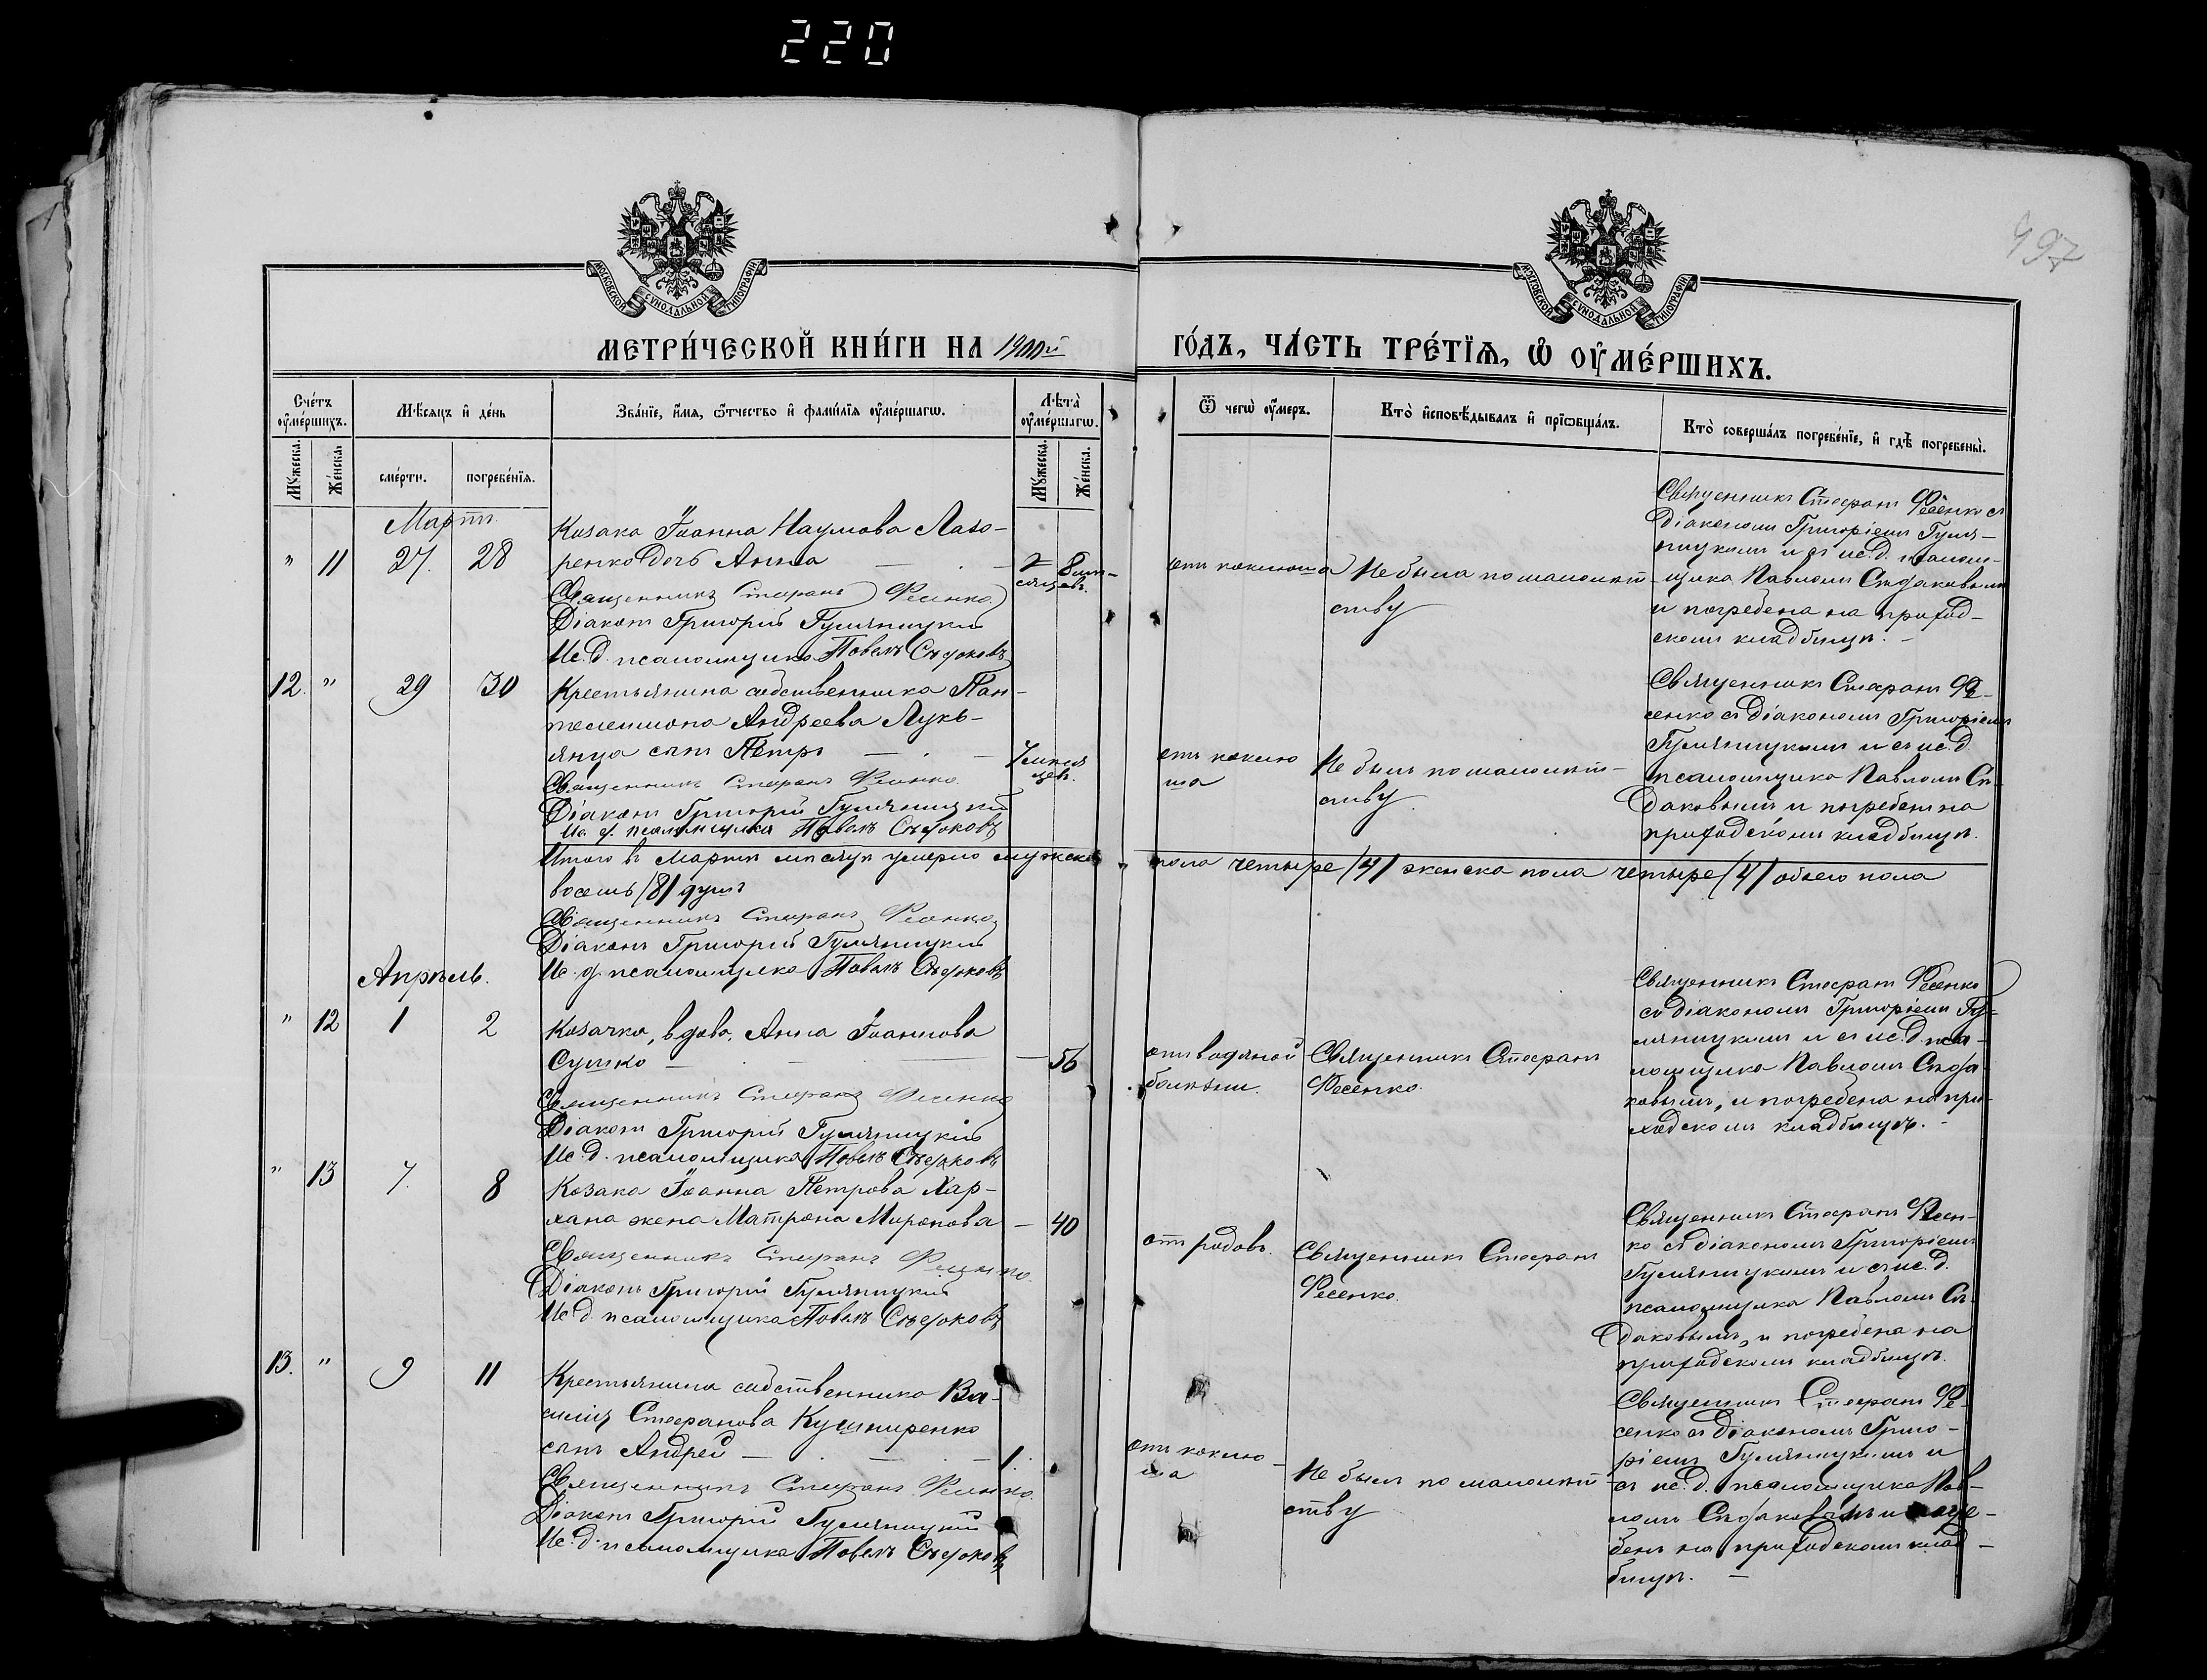 220
497
МОСКОВСКОЙ СѴНОДАЛЬНОЙ ТИПОГРАФІИ
МОСКОВСКОЙ СѴНОДАЛЬНОЙ ТИПОГРАФІИ
МЕТРИ́ЧЕСКОЙ КНИ́ГИ НА 1900й
ГО́ДЪ, ЧА́СТЬ ТРЕ́ТЇѦ, Ѡ҆ ОУ҆МЕ́РШИХЪ.
Сче́тъ оу҆ме́ршихъ.
Мѣ́сяцъ и҆ де́нь
Зва́нїе, и҆́мѧ, ѻ҆́тчество и҆ фами́лїѧ оу҆ме́ршагѡ.
Лѣ́та оу҆ме́ршагѡ.
Ѿ чегѡ̀ оу҆́меръ.
Кто̀ и҆сповѣ́дывалъ и҆ прїѡбща́лъ.
Кто̀ соверша́лъ погребе́нїе, и҆ гдѣ̀ погребены̀.
Мꙋ́жеска.
Же́нска.
сме́рти.
погребе́нїѧ.
Мꙋ́жеска.
Же́нска.
Мартъ.
" 11 27. 28
Козака Іоанна Наумова Лазо-
ренко дочь Анна
2 8 мѣ-
сяцевъ.
Священникъ Стефанъ Фесенко
Діаконъ Григорій Гуляницкій
Ис. д. псаломщика Павелъ Сѣдаковъ
отъ коклюша
Не была по малолѣт-
ству
Священникъ Стефанъ Фесенко съ
діакономъ Григоріемъ Гуля-
ницкимъ и съ ис. д. псалом-
щика Павломъ Сѣдаковымъ
и погребена на приход-
скомъ кладбищѣ. -
12. " 29 30
Крестьянина собственника Пан-
телеимона Андреева Лукь-
янца сынъ Петръ
7 мѣся
цевъ.
Священникъ Стефанъ Фесенко.
Діаконъ Григорій Гуляницкій
Ис. д. псаломщика Павелъ Сѣдаковъ
отъ коклю
ша
Не былъ по малолѣт-
ству
Священникъ Стефанъ Фе-
сенко съ діакономъ Григоріемъ
Гуляницкимъ и съ ис. д.
псаломщика Павломъ Сѣ-
даковымъ и погребенъ на
приходскомъ кладбищѣ.
Итого въ Мартѣ мѣсяцѣ умерло мужска пола четыре /4/ женска пола четыре /4/ обоего пола
восемь /8/ душъ
Священникъ Стефанъ Фесенко
Діаконъ Григорій Гуляницкій
Ис. д. псаломщика Павелъ Сѣдаковъ
Апрѣль.
" 12 1 2
Козачка, вдова, Анна Іоаннова
Сушко
56
Священникъ Стефанъ Фесенко
Діаконъ Григорій Гуляницкій
Ис. д. псаломщика Павелъ Сѣдаковъ
отъ водяной
болѣзни.
Священникъ Стефанъ
Фесенко.
Священникъ Стефанъ Фесенко
съ діакономъ Григоріемъ Гу-
ляницкимъ и съ ис. д. пса-
ломщика Павломъ Сѣда-
ковымъ, и погребена на при-
ходскомъ кладбищѣ. -
" 13 7. 8
Козака Іоанна Петрова Хар-
лана жена Матрона Миронова
40
Священникъ Стефанъ Фесенко.
Діаконъ Григорій Гуляницкій
Ис. д. псаломщика Павелъ Сѣдаковъ
отъ родовъ.
Священникъ Стефанъ
Фесенко.
Священникъ Стефанъ Фесен-
ко съ діакономъ Григоріемъ
Гуляницкимъ и съ ис. д.
псаломщика Павломъ Сѣ-
даковымъ, и погребена на
приходскомъ кладбищѣ.
13. " 9 11
Крестьянина собственника Ва-
силія Стефанова Кушниренко
сынъ Андрей
1.
Священникъ Стефанъ Фесенко.
Діаконъ Григорій Гуляницкій
Ис. д. псаломщика Павелъ Сѣдаковъ
отъ коклю-
ша
Не былъ по малолѣт-
ству
Священникъ Стефанъ Фе-
сенко съ діакономъ Григо-
ріемъ Гуляницкимъ и
съ ис. д. псаломщика Пав-
ломъ Сѣдаковымъ и погре-
бенъ на приходскомъ клад-
бищѣ. -